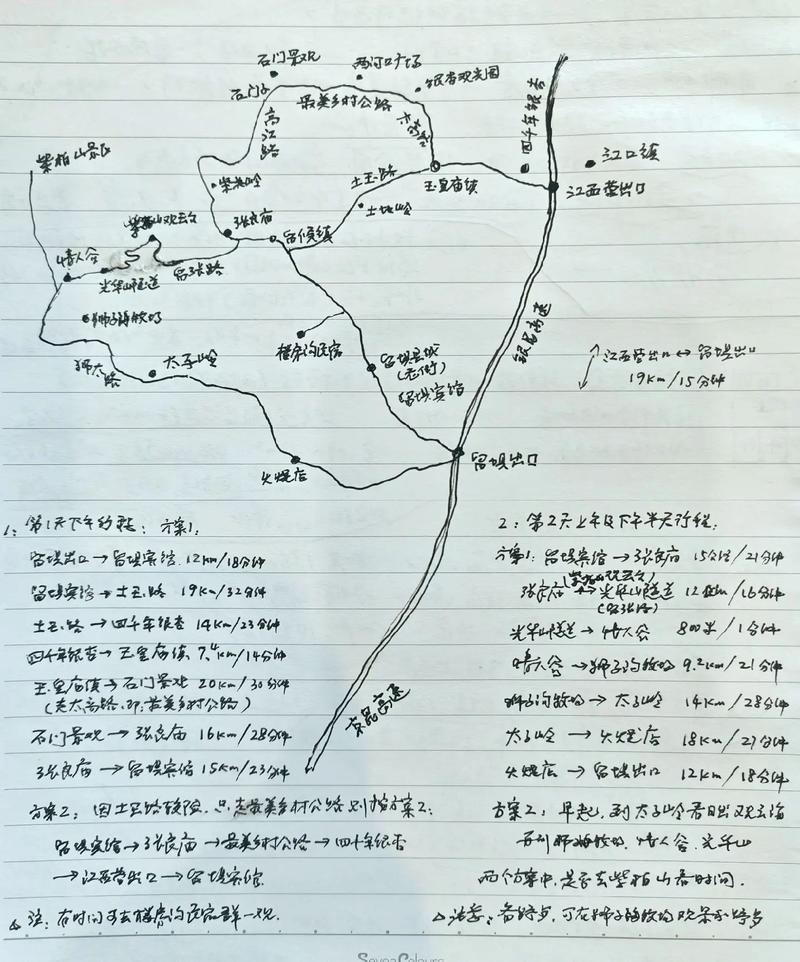 石门景观
两河口广场
银杏观光园
石门子
最美乡村公路
高江路
太高路
四千年银杏
江口镇
紫柏山景区
柴关岭
土玉路
玉皇庙镇
江西营出口
土地岭
紫柏山观云台
张良庙
留侯镇
情人谷
光华山隧道
留张路
狮子沟牧场
银昆高速
楼房沟民宿
留坝县城
(老街)
留坝宾馆
江西营出口 ↔ 留坝出口
19Km/15分钟
狮太路
太子岭
火烧店
留坝出口
京昆高速
1: 第1天下午行程: 方案1:
留坝出口 → 留坝宾馆 12km/18分钟
留坝宾馆 → 土玉路 19Km/32分钟
土玉路 → 四千年银杏 14Km/23分钟
四千年银杏 → 玉皇庙镇 7.4km/14分钟
玉皇庙镇 → 石门景观 20Km/30分钟
(走太高路,即:最美乡村公路)
石门景观 → 张良庙 16Km/28分钟
张良庙 → 留坝宾馆 15Km/23分钟
方案2: 因土玉路较险,只走最美乡村公路则按方案2:
留坝宾馆 → 张良庙 → 最美乡村公路 → 四千年银杏
→ 江西营出口 → 留坝宾馆
△ 注: 有时间可去楼房沟民宿群一观.
2: 第2天上午及下午半天行程:
方案1: 留坝宾馆 → 张良庙 15公里/21分钟
(紫柏山观云台)
张良庙 → 光华山隧道 12Km/16分钟
(留张路)
光华山隧道 → 情人谷 800米/1分钟
情人谷 → 狮子沟牧场 9.2km/21分钟
狮子沟牧场 → 太子岭 14Km/28分钟
太子岭 → 火烧店 18Km/27分钟
火烧店 → 留坝出口 12Km/18分钟
方案2: 早起,到太子岭看日出观云海
再到狮子沟牧场、情人谷、光华山
两个方案中,是否去紫柏山看时间.
△ 注意: 备踏步,可在狮子沟牧场观景